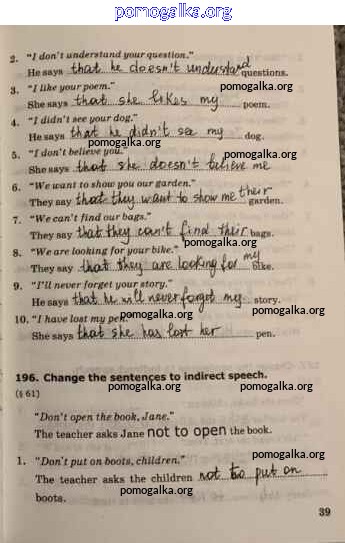 pomogalka.org
2. "I don't understand your question."
He says that he doesn't understand questions.
pomogalka.org
3. "I like your poem."
She says that she likes my poem.
pomogalka.org
4. "I didn't see your dog."
He says that he didn't see my dog.
pomogalka.org
5. "I don't believe you."
She says that she doesn't believe me
pomogalka.org
6. "We want to show you our garden."
They say that they want to show me their garden.
pomogalka.org
7. "We can't find our bags."
They say that they can't find their bags.
pomogalka.org
8. "We are looking for your bike."
They say that they are looking for my bike.
pomogalka.org
9. "I'll never forget your story."
He says that he will never forget my story.
pomogalka.org
10. "I have lost my pen."
She says that she has lost her pen.
pomogalka.org
196. Change the sentences to indirect speech.
(§ 61) pomogalka.org
"Don't open the book, Jane."
The teacher asks Jane not to open the book.
pomogalka.org
1. "Don't put on boots, children."
The teacher asks the children not to put on
boots. pomogalka.org
39
pomogalka.org